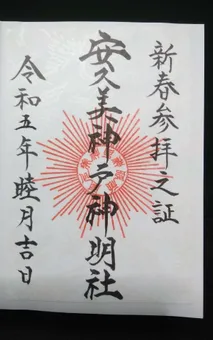 新春参拝之証
安久美神戸神明社
令和五年睦月吉日